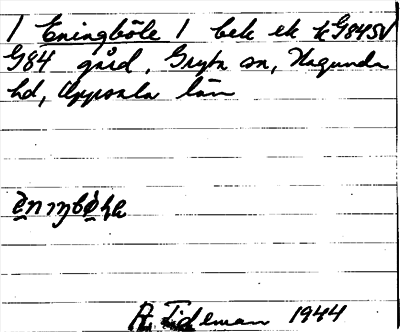 1 Eningböle 1 bek ek k G84SV
G84 gård, Gryta sn, Hagunda
hd, Uppsala län
R. Tideman 1944